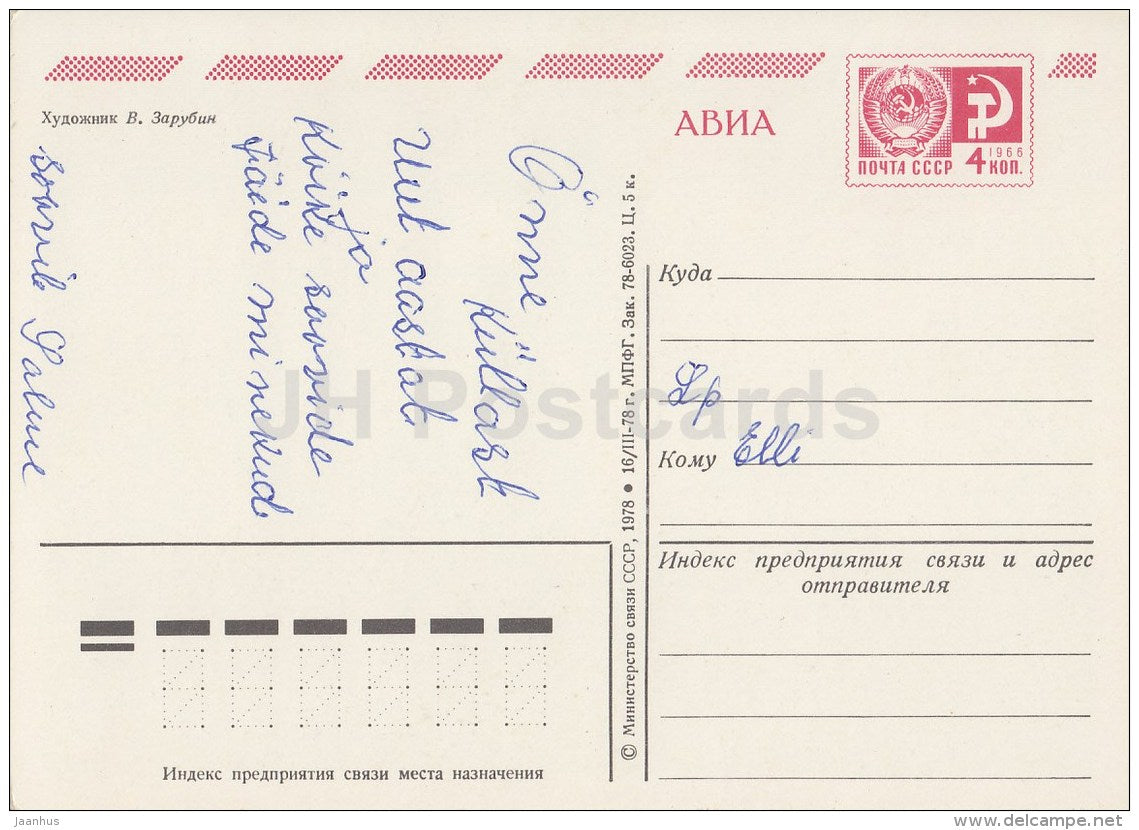 Художник В. Зарубин
АВИА
1966
ПОЧТА СССР 4 КОП.
Õnne
Küllast
Uut aastat
ja
Kõike soovide
täide minekud
soovib Salme
Куда
Lp
Кому Elli
Индекс предприятия связи и адрес
отправителя
© Министерство связи СССР, 1978 • 16/III-78 г. МПФГ. Зак. 78-6023. Ц. 5 к.
Индекс предприятия связи места назначения
JH Postcards
Jaanhus
www.delcampe.net